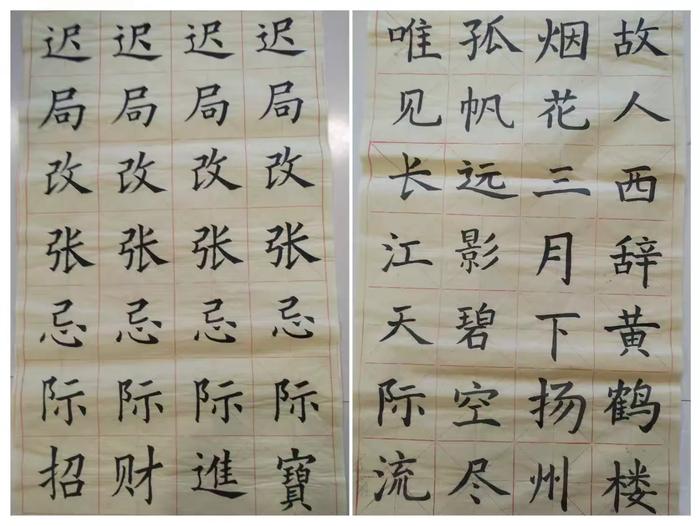 迟迟迟迟
局局局局
改改改改
张张张张
忌忌忌忌
际际际际
招财進寶
故人西辞黄鹤楼
烟花三月下扬州
孤帆远影碧空尽
唯见长江天际流